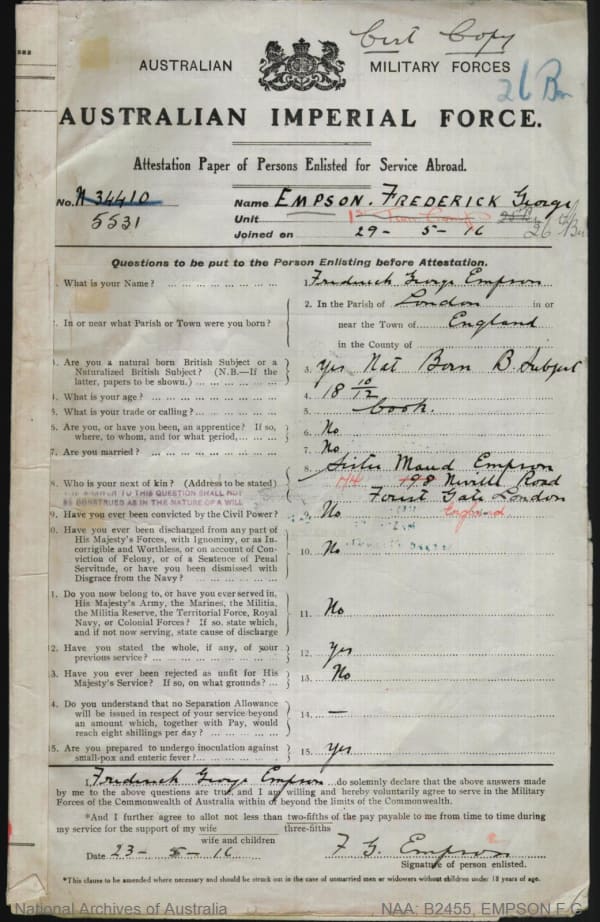 Cert Copy
AUSTRALIAN MILITARY FORCES
26 Bn
AUSTRALIAN IMPERIAL FORCE.
Attestation Paper of Persons Enlisted for Service Abroad.
No. N 34410 Name EMPSON. FREDERICK George
5531 Unit
26
Joined on 29-5-16
Questions to be put to the Person Enlisting before Attestation.
. What is your Name? ... 1. Frederick George Empson
. In or near what Parish or Town were you born? ... 2. In the Parish of London in or
near the Town of England
in the County of
. Are you a natural born British Subject or a
Naturalized British Subject? (N.B.—If the
latter, papers to be shown.) ... 3. Yes Nat Born B. Subject
. What is your age? ... 4. 18 10/12
5. What is your trade or calling? ... 5. Cook.
6. Are you, or have you been, an apprentice? If so,
where, to whom, and for what period, ... 6. No
7. Are you married? ... 7. No
8. Who is your next of kin? (Address to be stated) 8. Sister Maud Empson
H4 198 Nevill Road
Forest Gate London
England
THE ANSWER TO THIS QUESTION SHALL NOT
BE CONSTRUED AS IN THE NATURE OF A WILL
9. Have you ever been convicted by the Civil Power? 9. No
0. Have you ever been discharged from any part of
His Majesty's Forces, with Ignominy, or as In-
corrigible and Worthless, or on account of Con-
viction of Felony, or of a Sentence of Penal
Servitude, or have you been dismissed with
Disgrace from the Navy? ... 10. No
1. Do you now belong to, or have you ever served in,
His Majesty's Army, the Marines, the Militia,
the Militia Reserve, the Territorial Force, Royal
Navy, or Colonial Forces? If so, state which,
and if not now serving, state cause of discharge 11. No
2. Have you stated the whole, if any, of your
previous service? ... 12. Yes
3. Have you ever been rejected as unfit for His
Majesty's Service? If so, on what grounds? ... 13. No
4. Do you understand that no Separation Allowance
will be issued in respect of your service beyond
an amount which, together with Pay, would
reach eight shillings per day? ... 14. —
5. Are you prepared to undergo inoculation against
small-pox and enteric fever? ... 15. Yes
I, Frederick George Empson do solemnly declare that the above answers made
by me to the above questions are true, and I am willing and hereby voluntarily agree to serve in the Military
Forces of the Commonwealth of Australia within or beyond the limits of the Commonwealth.
*And I further agree to allot not less than two-fifths of the pay payable to me from time to time during
three-fifths
my service for the support of my wife
wife and children
Date 23-5-16 F G Empson
Signature of person enlisted.
*This clause to be amended where necessary and should be struck out in the case of unmarried men or widowers without children under 18 years of age.
National Archives of Australia NAA: B2455, EMPSON F G